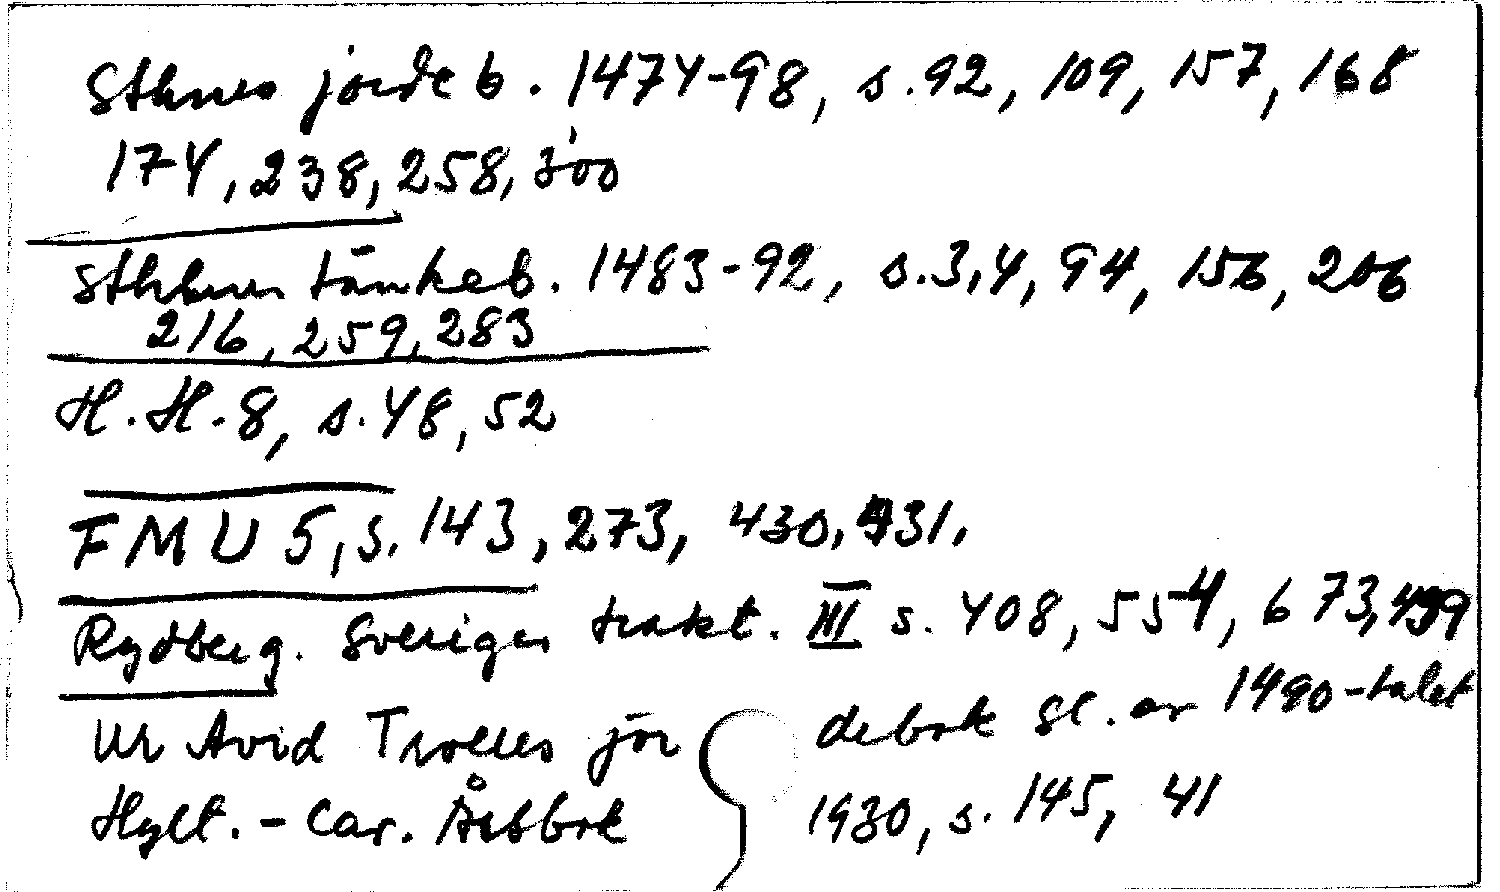 Sthms jordeb. 1474-98, s. 92, 109, 157, 168
174, 238, 258, 300
Sthlms tänkeb. 1483-92, s. 3, 4, 94, 156, 206
216, 259, 283
H. H. 8, s. 48, 52
FMU 5, s. 143, 273, 430, 431,
Rydberg. Sveriges trakt. III s. 408, 554, 673, 499
Ur Avid Trolles jor debok sl. av 1490-talet
Hylt.-Cav. Årsbok 1930, s. 145, 41